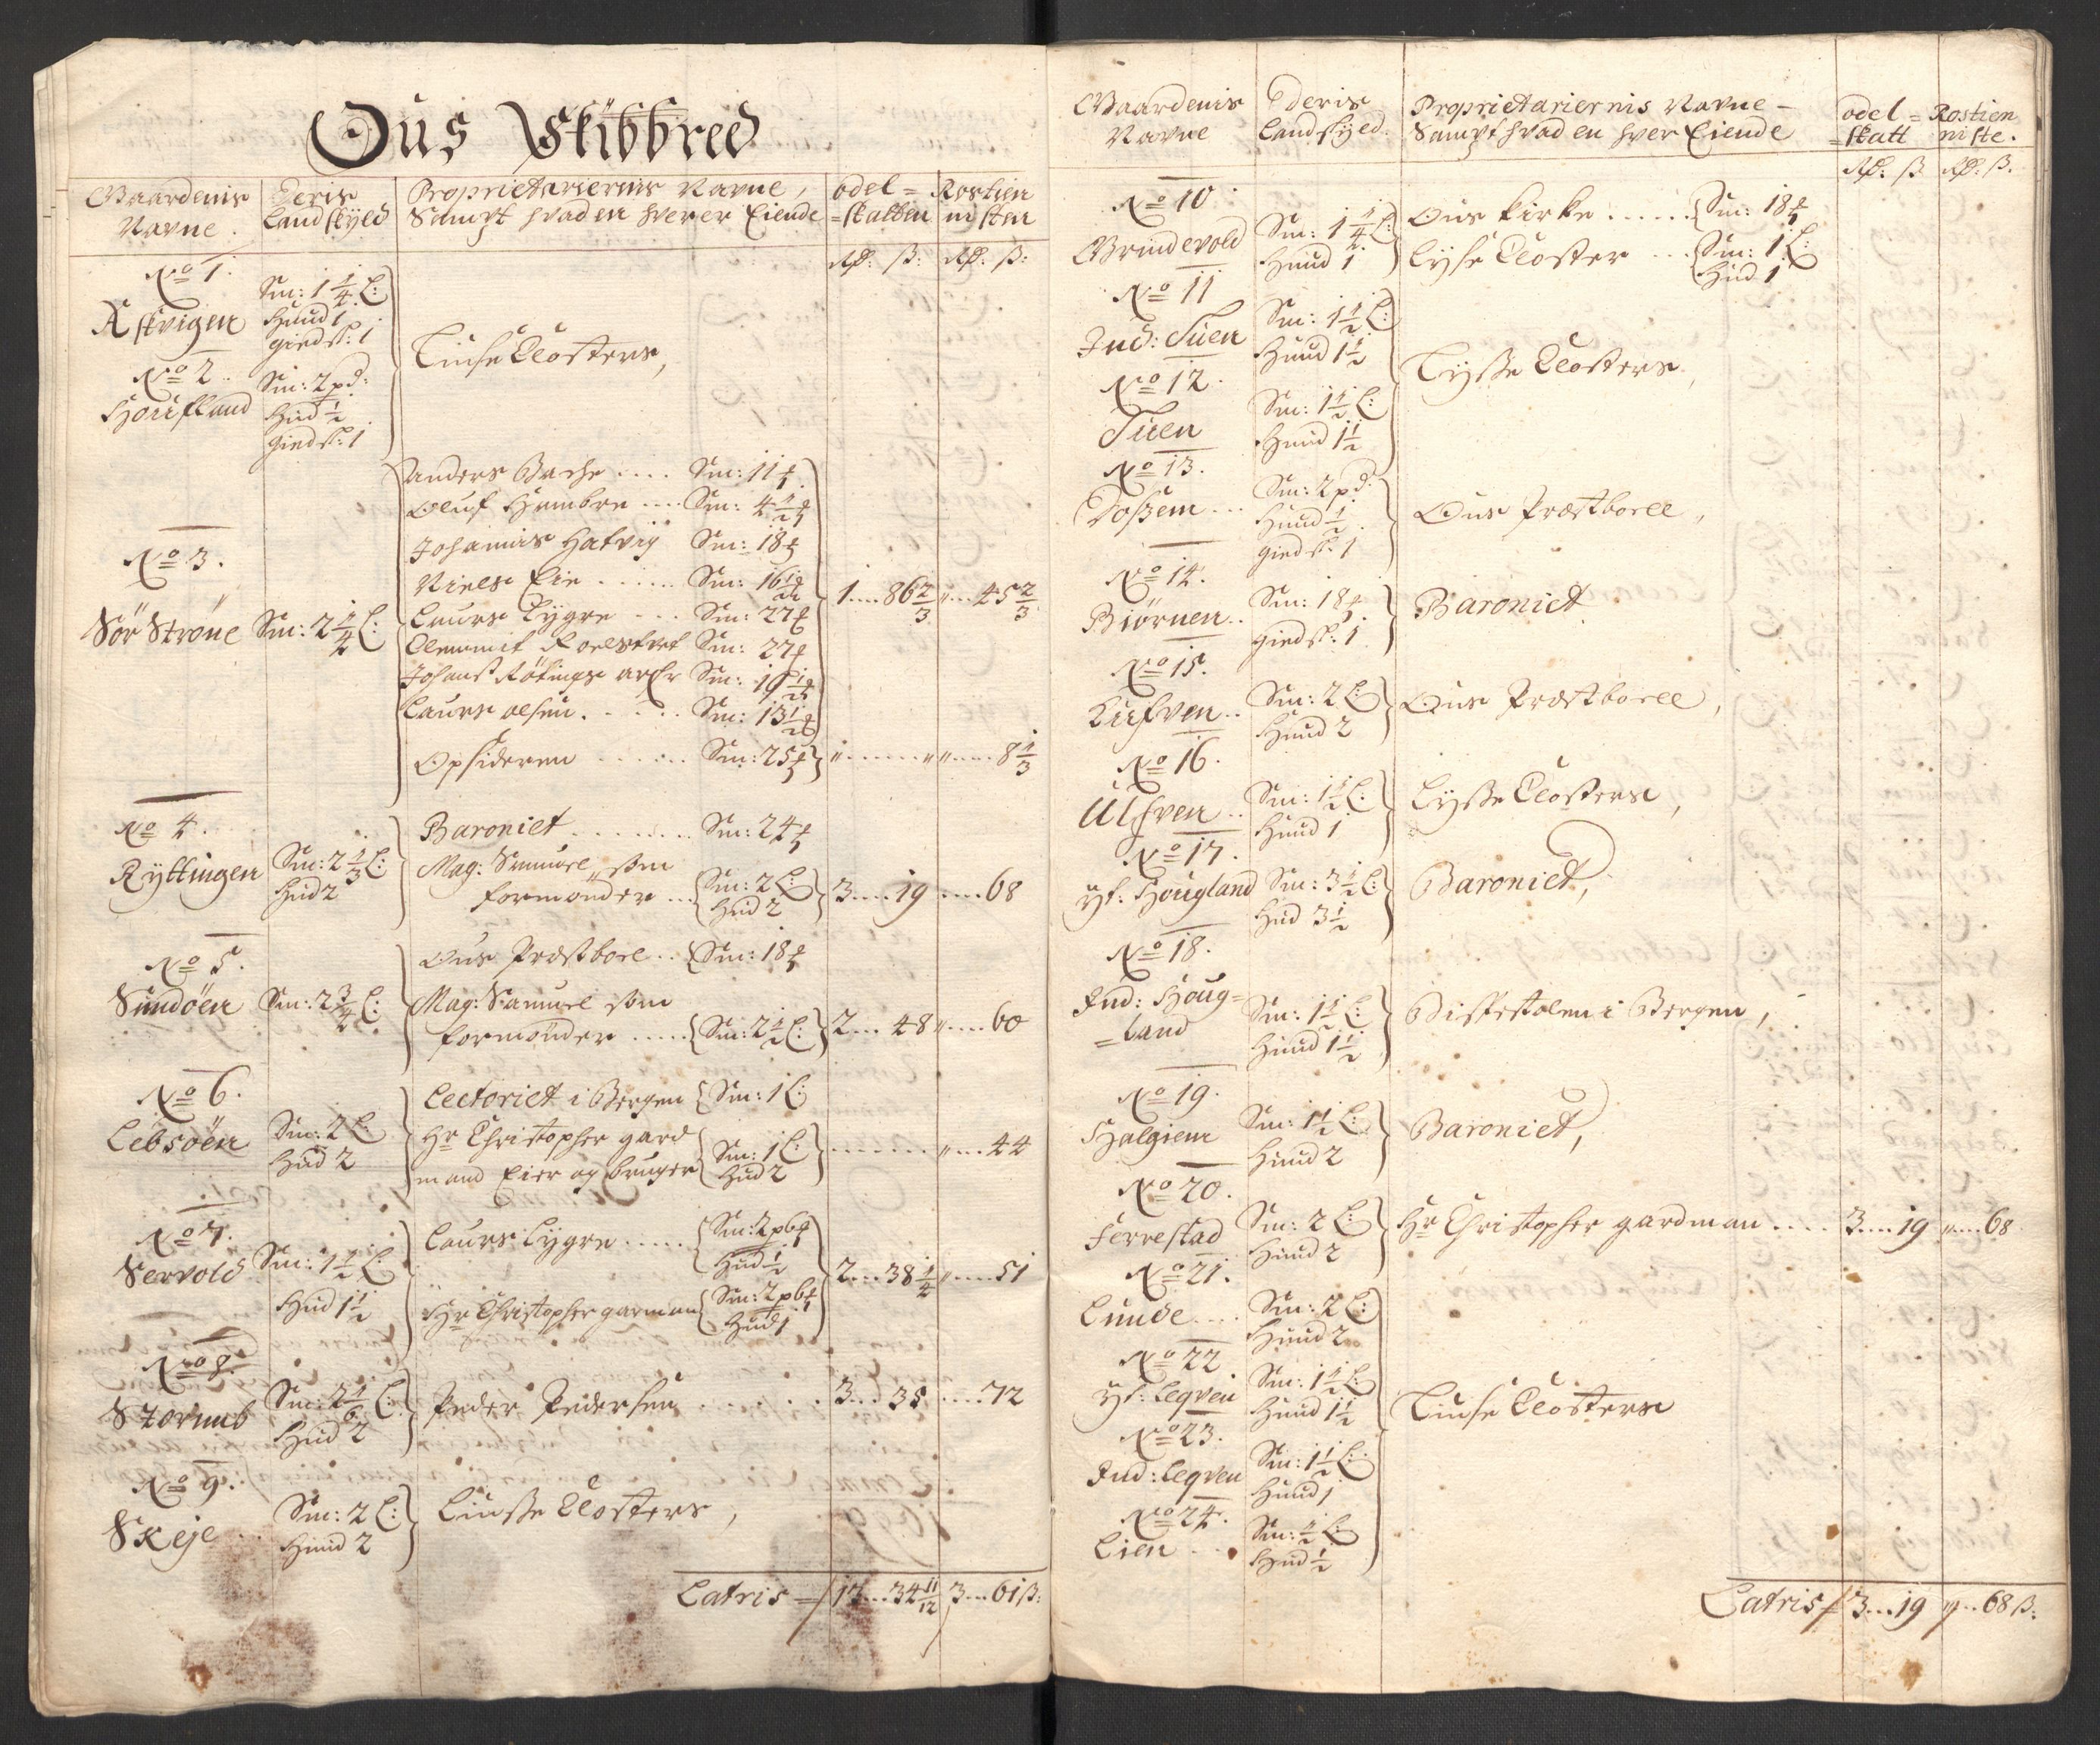 Ous Skibbred
Gaardenis Navne.
Deris Landskyld
Proprietariernis Navne,
Sampt hvad en hver er Eiende
odel= =skatten
Rostien nisten
Rd: ß: Rd: ß:
No 1.
Askvigen
Sm: 1 1/4 L:
Huud 1
giedsk: 1
Liuse Closters,
No 2.
Houfland
Sm: 2 pd:
Hud 1/2
giedsk: 1
No 3.
Sör Ströne Sm: 2 1/4 L:
Anders Bache .... Sm: 11
Oluf Hambre .... Sm: 4 1/2
Johannis Hatvig Sm: 18
Niels Eie ..... Sm: 16 1/2
Laurs Lygre ... Sm: 27
1 .... 86 2/3 " .... 45 2/3
Sm: 27
Sm: 19 1/2
Laurs olsen ..... Sm: 13 1/2
Opsideren ...... Sm: 25 " ...... " " .... 8 1/3
No 4.
Ryttingen
Sm: 2 1/3 L:
Hud 2
Baroniet ....... Sm: 24
Mag: Samuel som
formönder ... Sm: 2 L: Hud 2 3 .... 19 .... 68
No 5.
Sundöen Sm: 2 3/4 L:
Ous Præstboel .. Sm: 18
Mag: Samuel som
formönder ..... Sm: 2 1/2 L: 2 ... 48 " .... 60
No 6.
Lebsöen
Sm: 2 L:
Hud 2
Lectoriet i Bergen Sm: 1 L:
Hr Christopher gard
mand Eier og bruger Sm: 1 L: Hud 2 ........ " .... 44
No 7.
Servold
Sm: 1 1/2 L:
Hud 1 1/2
Laurs Lygre ..... Sm: 2 pd
Hud 1/2
2 ... 38 1/4 " .... 51
Hr Christopher garman Sm: 2 pd
Hud 1
No 8.
Storumb
Sm: 2 1/6 L:
Hud 2
Peder Pedersen ...... 3 ... 35 .... 72
No 9.
Skeje
Sm: 2 L:
Huud 2
Liusse Closters,
Latris 13 ... 34 11/12 3 ... 61 ß:
Gaardenis Navne
Deris Landskyld.
Proprietariernis Navne
Sampt hvad en hver Eiende
odel= =skatt
Rostien niste.
Rd: ß Rd: ß.
No 10
Grindevold
Sm: 1 1/4 L:
Huud 1
Ous Kirke ...... Sm: 18
Lyse Closter ... Sm: 1 L:
Hud 1
No 11
Ind: Tuen
Sm: 1 1/2 L:
Huud 1 1/2
Lysse Closters,
No 12.
Tuen
Sm: 1 1/2 L:
Huud 1 1/2
No 13.
Dossem ...
Sm: 2 pd:
Huud 1/2
giedsk: 1
Ous Præstboell,
No 14.
Biörnen ..
Sm: 18
giedsk: 1
Baroniet
No 15.
Kuefven ..
Sm: 2 L:
Huud 2
Ous Præstboell,
No 16.
Ulfven ..
Sm: 1 1/2 L:
Huud 1
Lysse Closters,
No 17.
yt: Hougland
Sm: 3 1/2 L:
Hud 3 1/2
Baroniet,
No 18.
Ind: Houg=
=land
Sm: 1 1/2 L:
Huud 1 1/2
Bispestolen i Bergen,
No 19.
Halgiem
Sm: 1 1/2 L:
Huud 2
Baroniet,
No 20.
Ferrestad
Sm: 2 L:
Huud 2
Hr Christopher gardman .... 3 .... 19 " .... 68
No 21.
Lunde ....
Sm: 2 L:
Huud 2
No 22
yt: Legven
Sm: 1 1/2 L:
Huud 1 1/2
Liuse Closters
No 23.
Ind: Legven
Sm: 1 1/2 L:
Huud 1
No 24.
Lien ...
Sm: 1/2 L:
Hud 1/2
Latris 3 ... 19 " ... 68 ß: